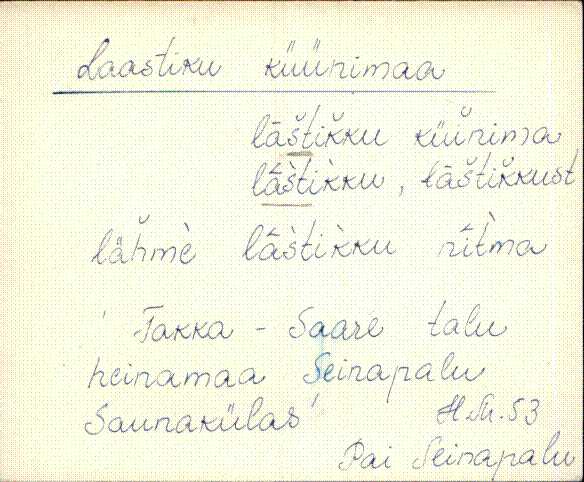 Laastiku küünimaa
lāštikku küünima
lāštikku, lāštikkust
lähmè lāštikku nītma
'Takka-Saare talu
heinamaa Seinapalu
Saunakülas'
H.Nr. 53
Pai Seinapalu